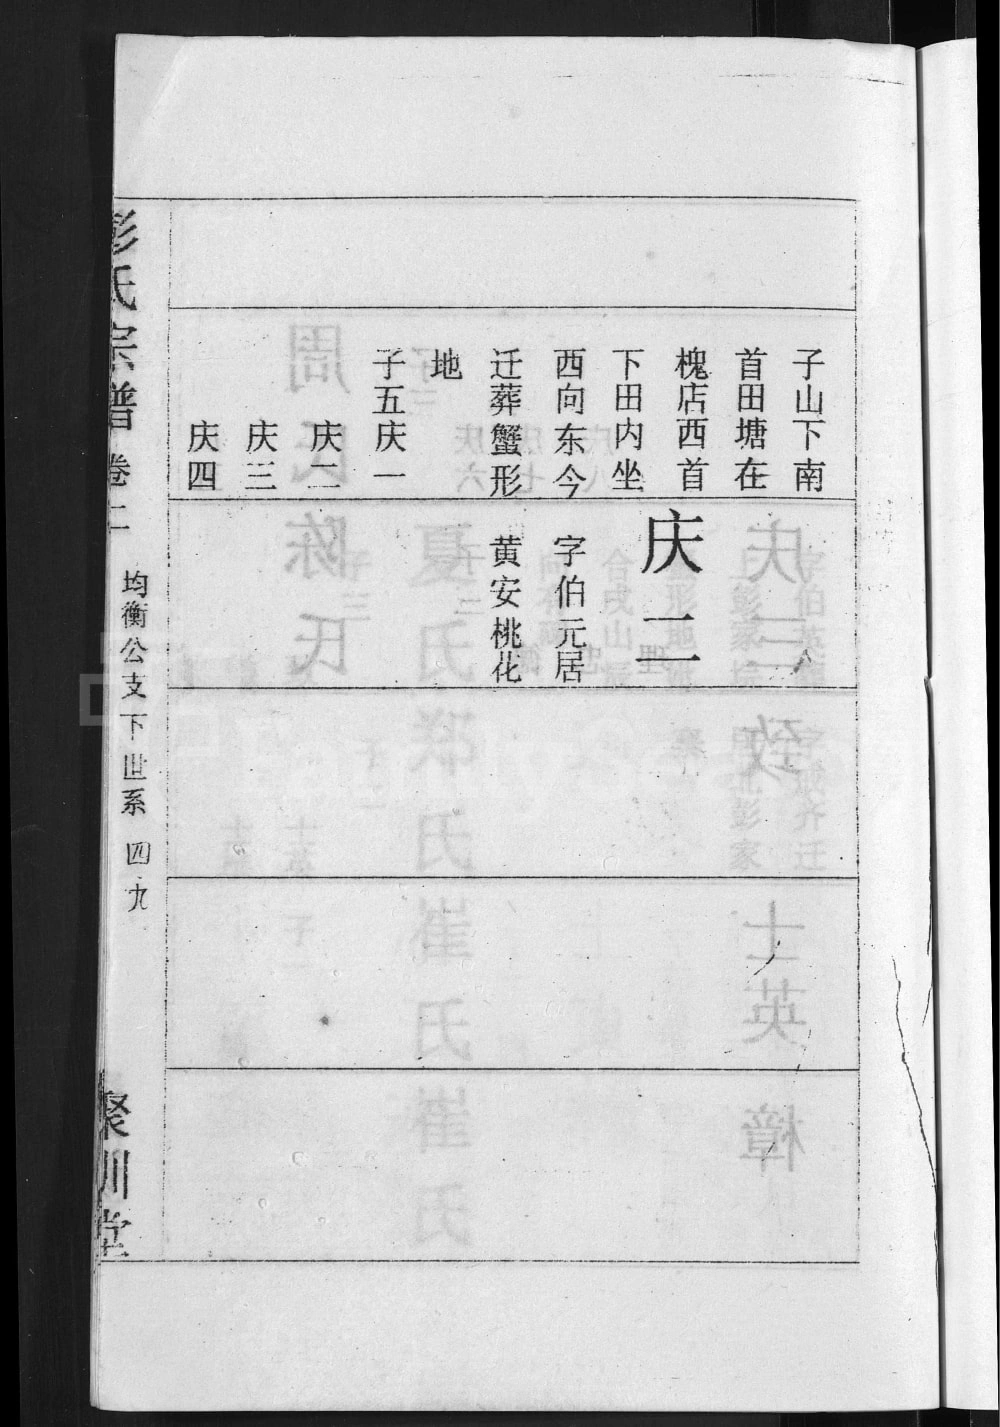 子山下南
首田塘在
槐店西首
下田内坐
西向东今
迁葬蟹形
地
子五庆一
庆二
庆三
庆四
庆二
字伯元居
黄安桃花
彭氏宗谱 卷二 均衡公支下世系 四九 聚川堂